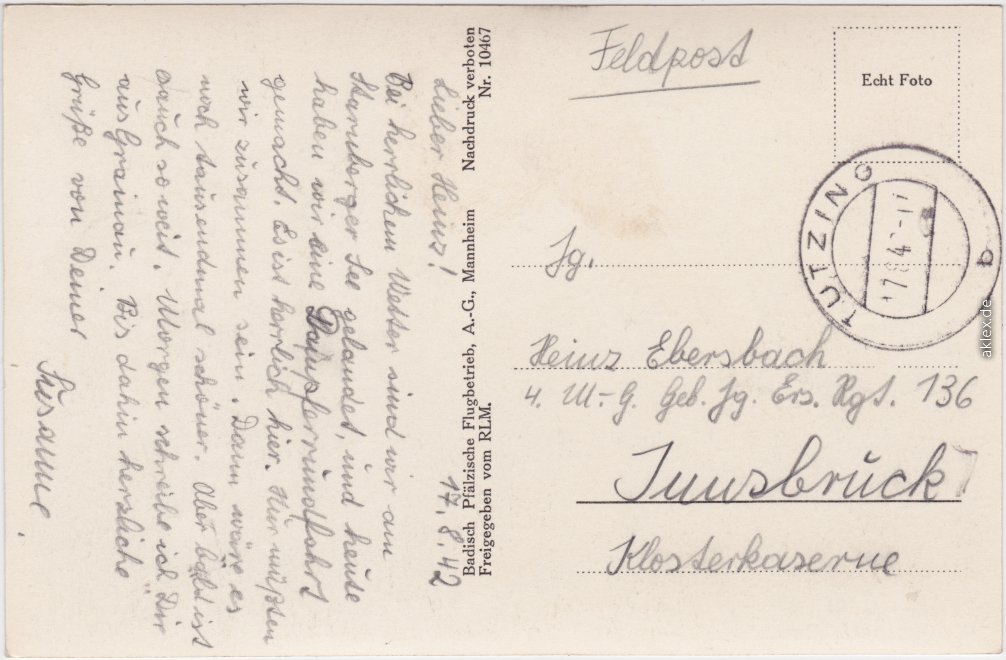 17.8.42
Lieber Heinz!
Bei herrlichem Wetter sind wir am
Starnberger See gelandet, und heute
haben wir eine Dampferrundfahrt
gemacht. Es ist herrlich hier. Nur müßten
wir zusammen sein. Dann wäre es
noch tausendmal schöner. Aber bald ist
auch so weit. Morgen schreibe ich Dir
aus Grainau. Bis dahin herzliche
Grüße von Deiner
Susanne.
Badisch Pfälzische Flugbetrieb, A.-G., Mannheim Nachdruck verboten
Freigegeben vom RLM. Nr. 10467
Feldpost
Echt Foto
TUTZING
b
Jg.
Heinz Ebersbach
4. M.-G. Geb. Jg. Ers. Rgt. 136
Innsbruck
Klosterkaserne
aklex.de